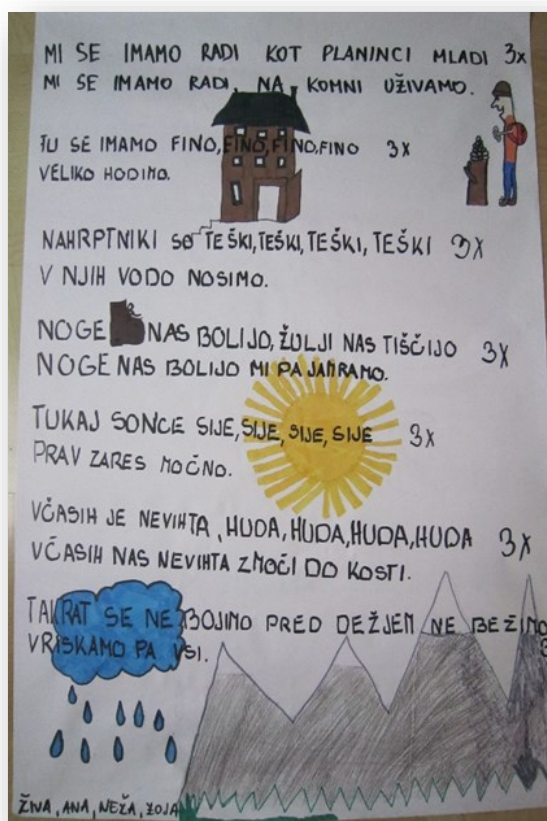 MI SE IMAMO RADI KOT PLANINCI MLADI 3x
MI SE IMAMO RADI, NA KOMNI UŽIVAMO.
TU SE IMAMO FINO, FINO, FINO, FINO 3X
VELIKO HODIMO.
NAHRPTNIKI SO TEŠKI, TEŠKI, TEŠKI, TEŠKI 3X
V NJIH VODO NOSIMO.
NOGE NAS BOLIJO, ŽULJI NAS TIŠČIJO 3X
NOGE NAS BOLIJO MI PA JAMRAMO.
TUKAJ SONCE SIJE, SIJE, SIJE, SIJE 3X
PRAV ZARES MOČNO.
VČASIH JE NEVIHTA, HUDA, HUDA, HUDA, HUDA 3X
VČASIH NAS NEVIHTA ZMOČI DO KOSTI.
TAKRAT SE NE BOJIMO PRED DEŽJEM NE BEŽIMO 3
VRISKAMO PA VSI.
ŽIVA, ANA, NEŽA, ZOJA